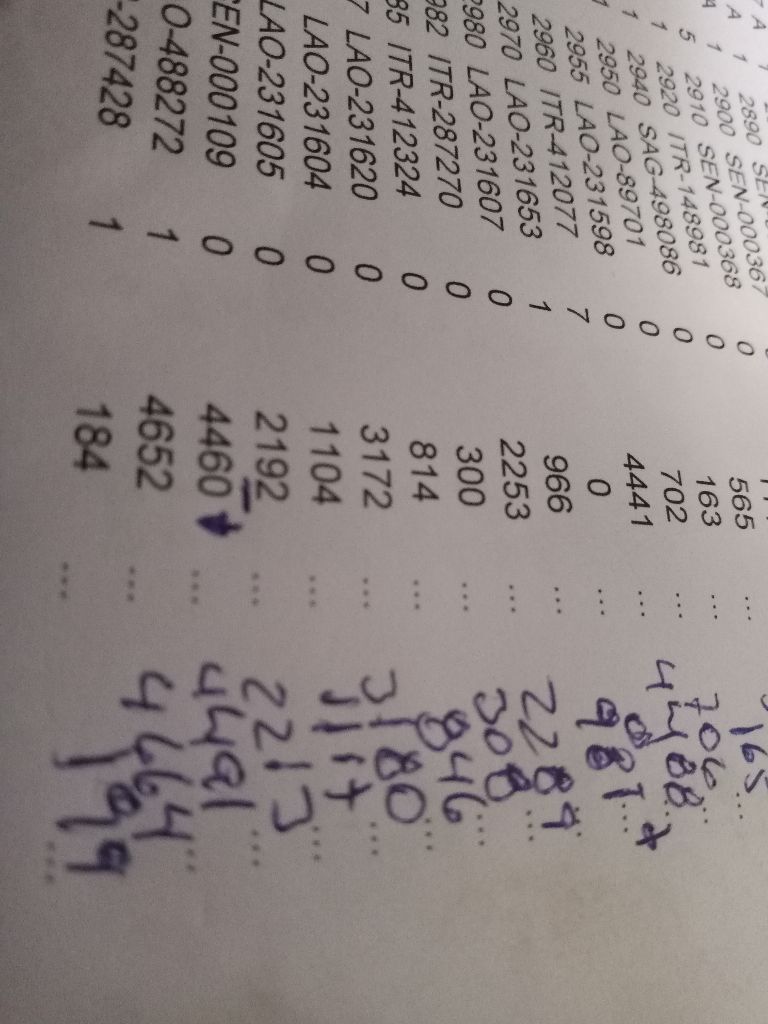 2890 SEN-
A 1 2900 SEN-000367
A 1 2910 SEN-000368 0
5 2920 ITR-148981 0 565 ...
1 2940 SAG-498086 0 163 ... 165 ...
1 2950 LAO-89701 0 702 ... 706 ...
1 2955 LAO-231598 0 4441 ... 4488 +
2960 ITR-412077 7 0 ... 0 ...
2970 LAO-231653 1 966 ... 981 ...
2980 LAO-231607 0 2253 ... 2289 ...
982 ITR-287270 0 300 ... 308 ...
85 ITR-412324 0 814 ... 846 ...
7 LAO-231620 0 3172 ... 3180 ...
LAO-231604 0 1104 ... 1117 ...
LAO-231605 0 2192 ... 2213 ...
SEN-000109 0 4460 ... 4491 ...
O-488272 1 4652 ... 4664 ...
-287428 1 184 ... 199 ...